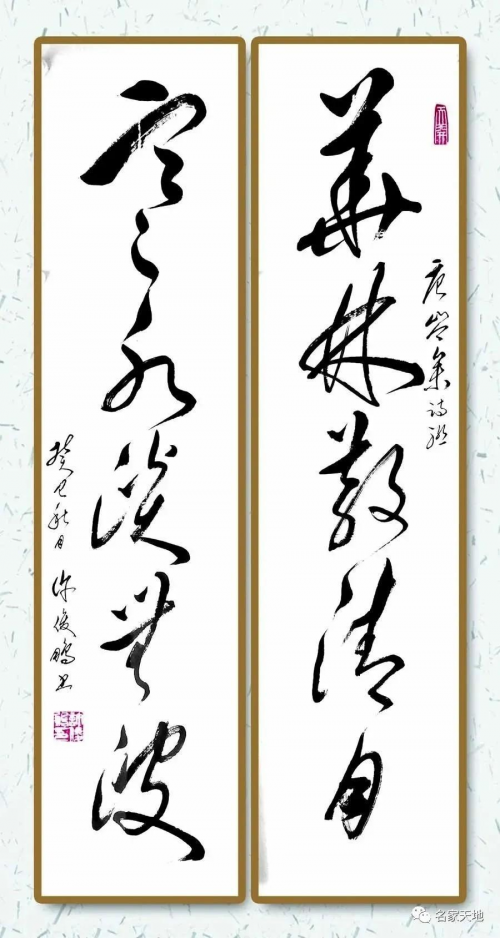 華林散清月
唐岑參詩聯
寒水淡無波
癸巳秋月 許俊鵬書
名家天地